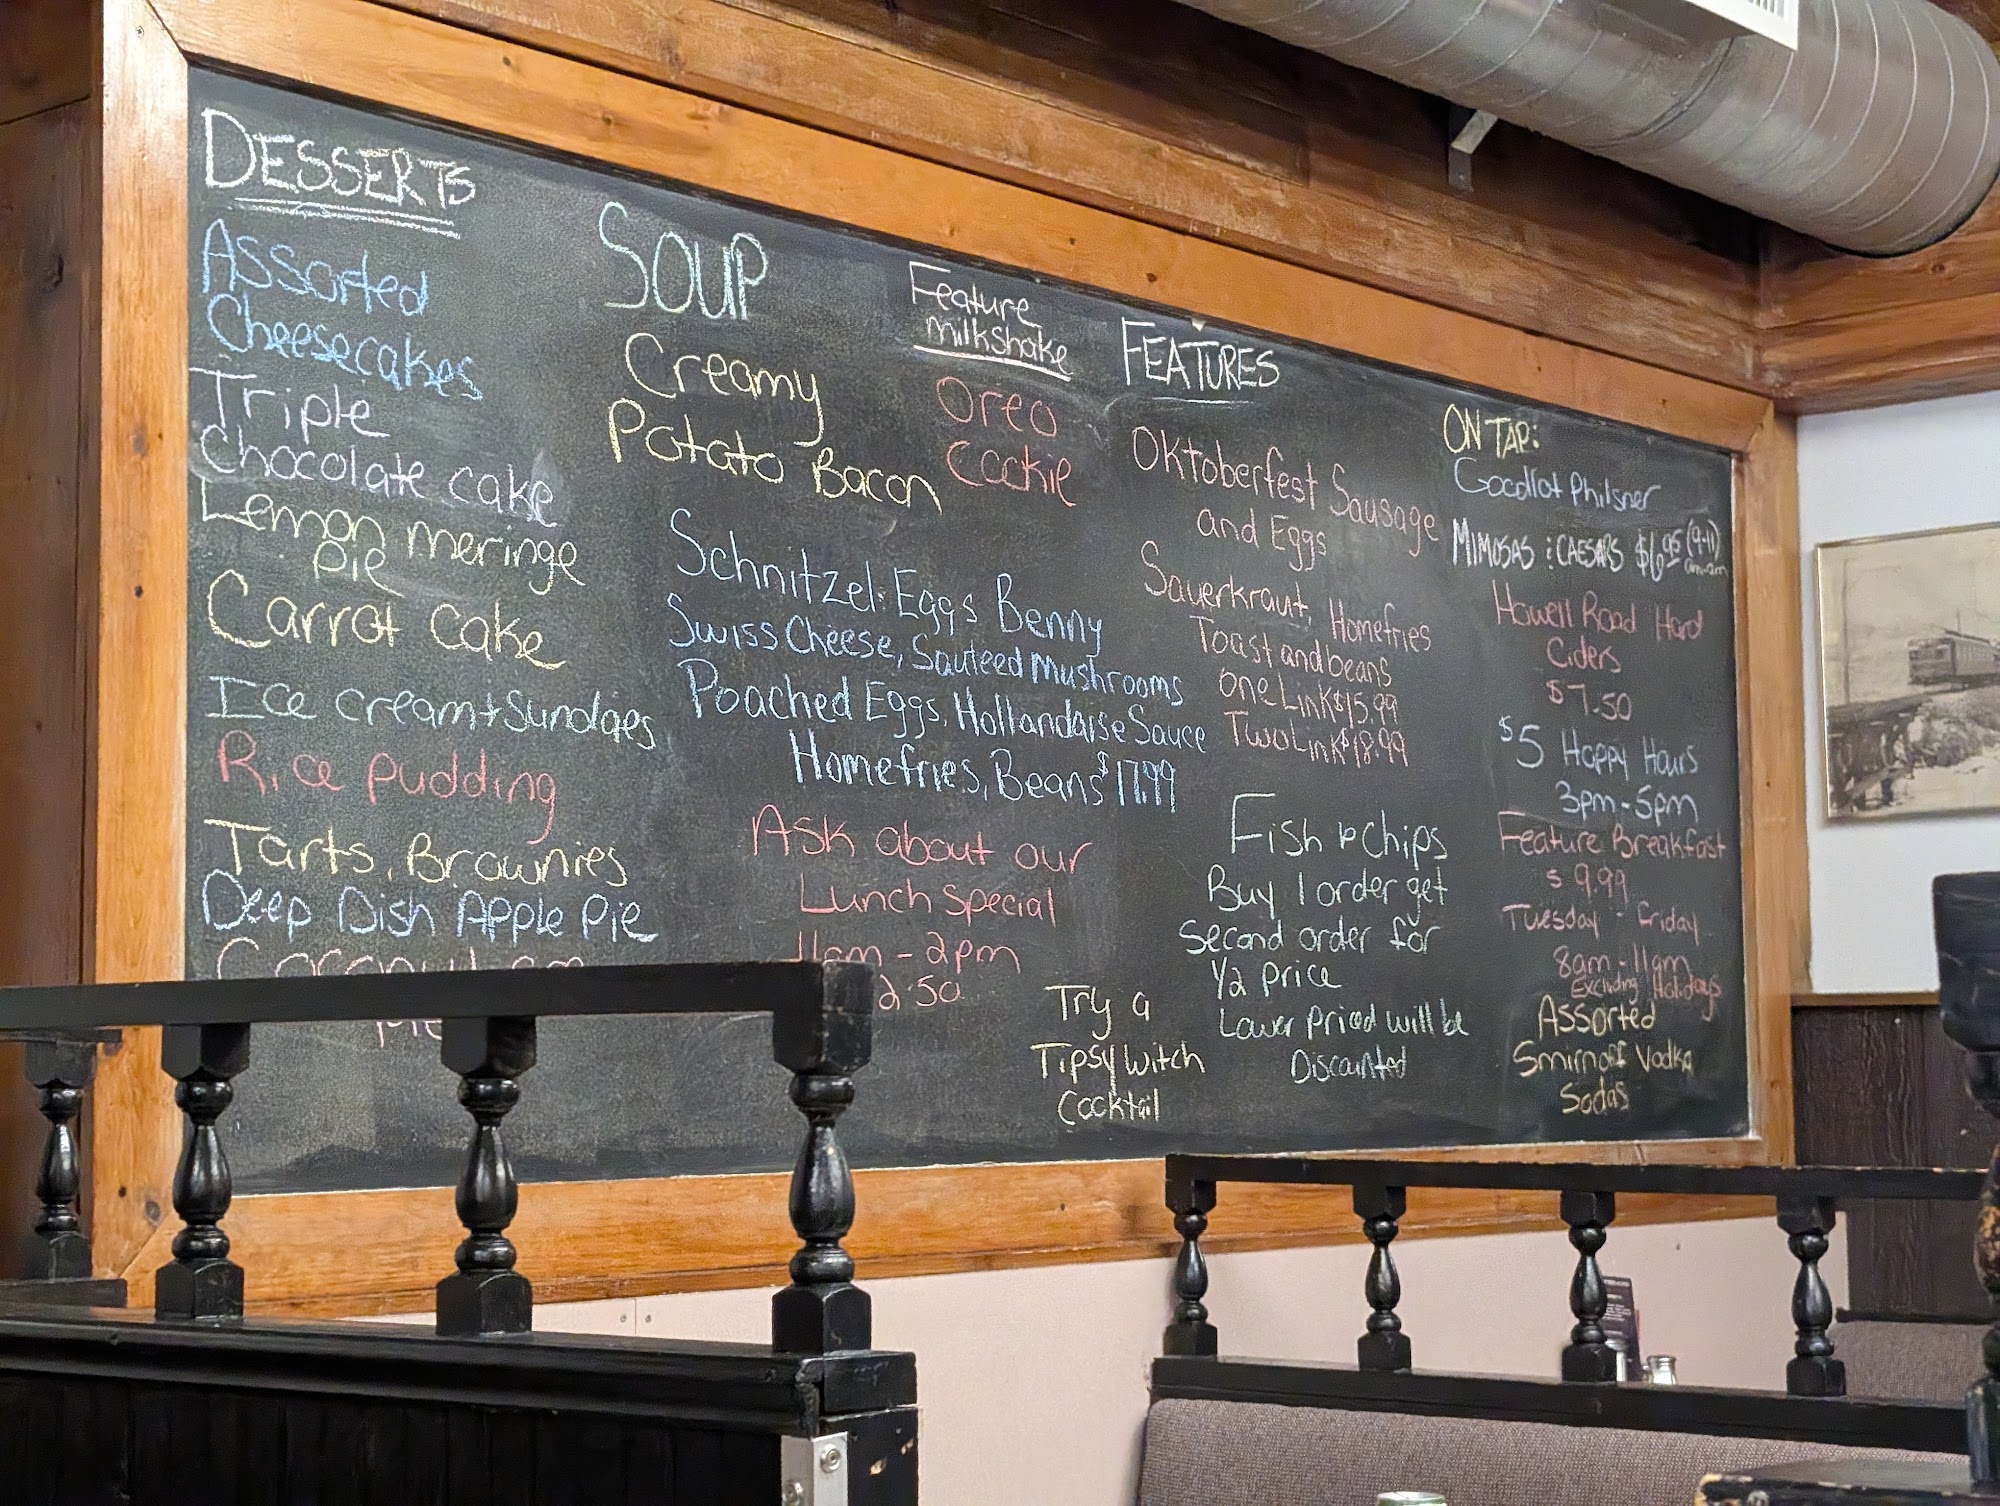 DESSERTS
Assorted
Cheesecakes
Triple
Chocolate cake
Lemon meringe
Pie
Carrot Cake
Ice cream + Sundaes
Rice pudding
Tarts, Brownies
Deep Dish Apple Pie
Pie
SOUP
Creamy
Potato Bacon
Feature
milkshake
Oreo
Cookie
Schnitzel Eggs Benny
Swiss Cheese, Sauteed Mushrooms
Poached Eggs, Hollandaise Sauce
Homefries, Beans $17.99
Ask about our
Lunch special
11am - 2pm
2.50
Try a
Tipsy Witch
Cocktail
FEATURES
Oktoberfest Sausage
and Eggs
Sauerkraut, Homefries
Toast and beans
one Link $15.99
Two Link $18.99
Fish & Chips
Buy 1 order get
second order for
1/2 price
Lower priced will be
Discounted
ON TAP:
Goodlot Philsner
MIMOSAS & CAESARS $6.95 (9-11)
am-am
Howell Road Hard
Ciders
$7.50
$5 Happy Hours
3pm - 5pm
Feature Breakfast
$9.99
Tuesday - Friday
8am - 11am
Excluding Holidays
Assorted
Smirnoff Vodka
Sodas